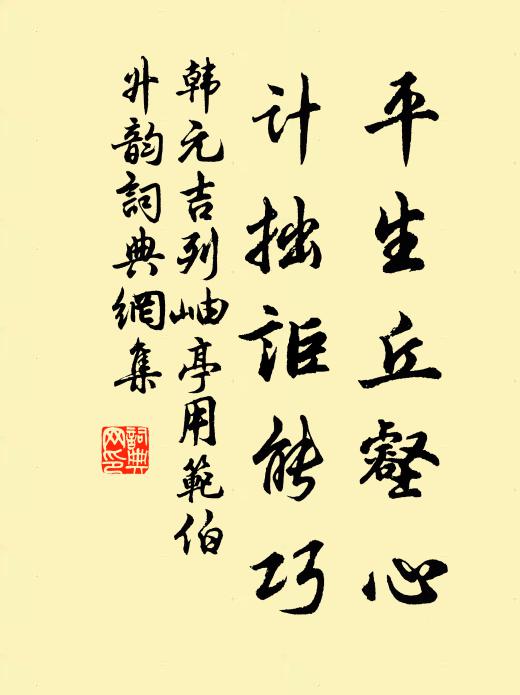 平生丘壑心
计拙讵能巧
韩元吉列岫亭用範伯
升韵詞典網集
詞典
网印